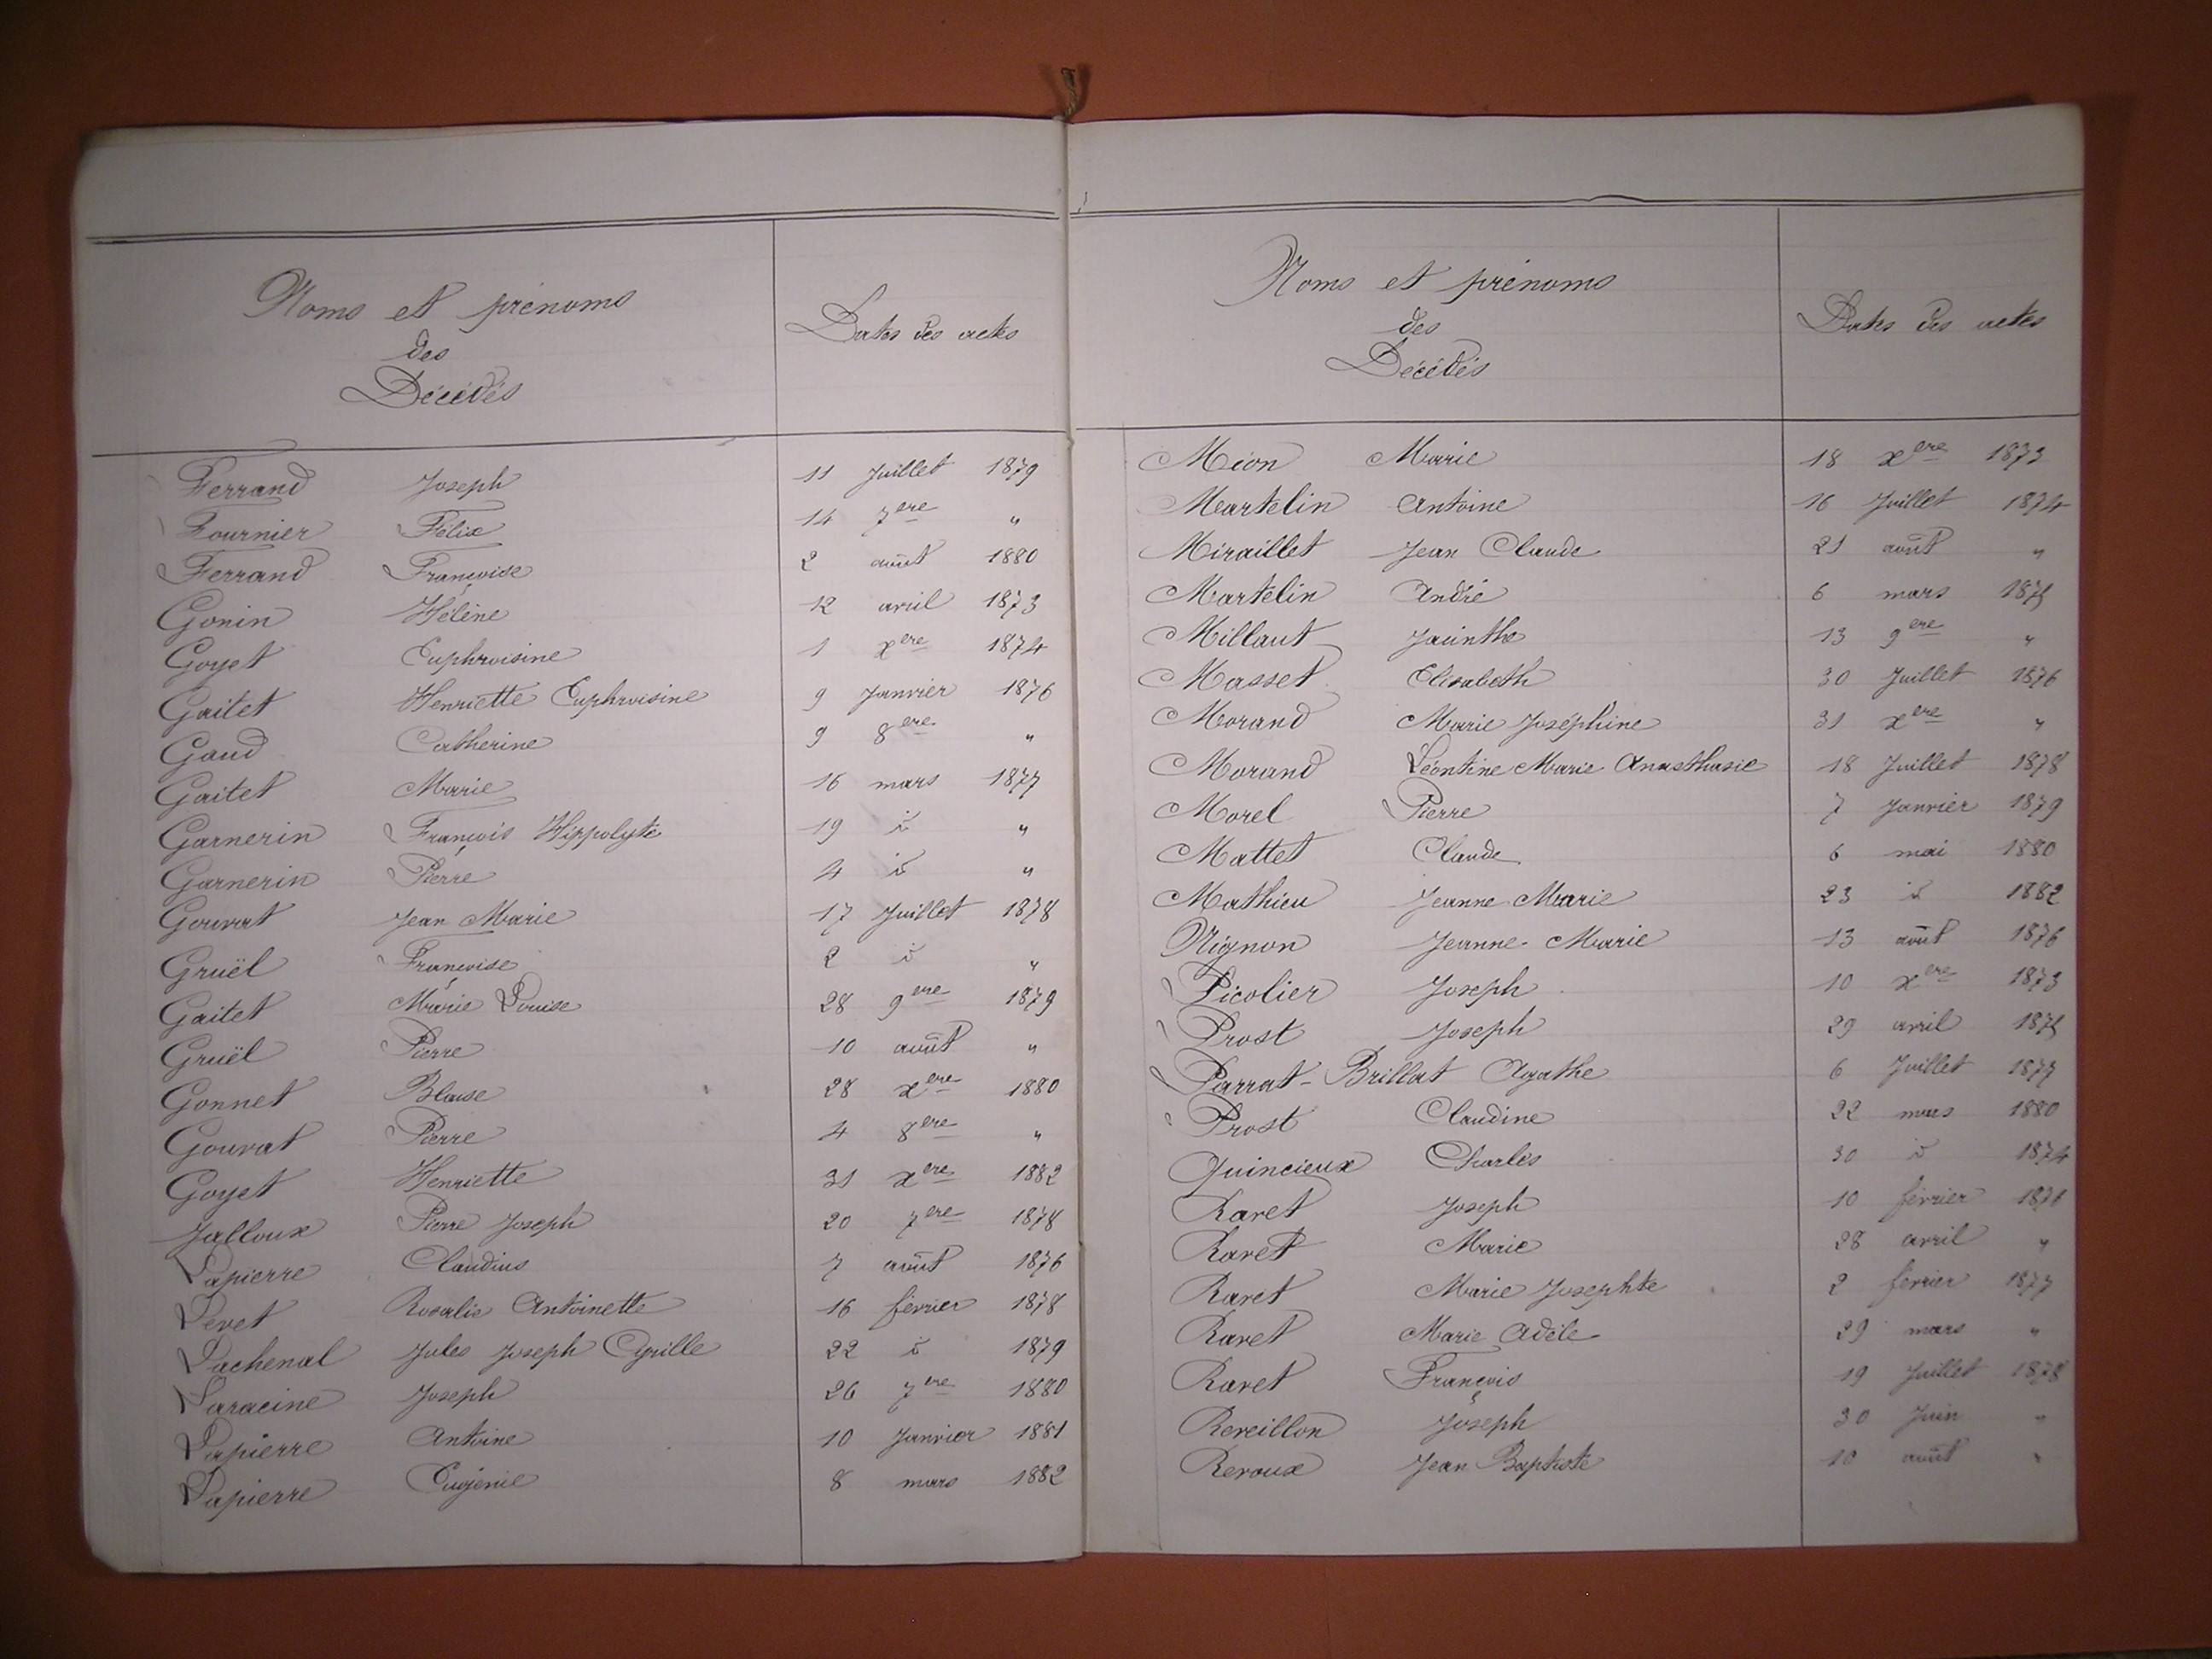 Noms et prénoms
des
Décédés
Dates des actes
Ferrand Joseph 11 Juillet 1879
Fournier Félix 14 7ere "
Ferrand Françoise 2 août 1880
Gonin Hélène 12 avril 1873
Goyet Euphroisine 1 xere 1874
Gaitet Henriette Euphroisine 9 Janvier 1876
Gaud Catherine 9 8ere "
Gaitet Marie 16 mars 1877
Garnerin François Hippolyte 19 id "
Garnerin Pierre 4 id "
Gouvat Jean Marie 17 Juillet 1878
Gruël Françoise 2 id "
Gaitet Marie Louise 28 9ere 1879
Gruël Pierre 10 août "
Gonnet Blaise 28 xere 1880
Gouvat Pierre 4 8ere "
Goyet Henriette 31 xere 1882
Jalloux Pierre Joseph 20 7ere 1878
Lapierre Claudius 7 août 1876
Levet Rosalie Antoinette 16 février 1878
Lachenal Jules Joseph Cyrille 22 id 1879
Laracine Joseph 26 7ere 1880
Lapierre Antoine 10 Janvier 1881
Lapierre Eugénie 8 mars 1882
Noms et prénoms
des
Décédés
Dates des actes
Mion Marie 18 xere 1873
Martelin Antoine 16 Juillet 1874
Miraillet Jean Claude 21 août "
Martelin André 6 mars 1875
Millaut Jacinthe 13 9ere "
Masset Elisabeth 30 Juillet 1876
Morand Marie Joséphine 31 xere "
Morand Léontine Marie Anasthasie 18 Juillet 1878
Morel Pierre 7 Janvier 1879
Mattet Claude 6 mai 1880
Mathieu Jeanne Marie 23 id 1882
Nignon Jeanne-Marie 13 août 1876
Picolier Joseph 10 xere 1873
Prost Joseph 29 avril 1875
Parrat-Brillat Agathe 6 Juillet 1877
Prost Claudine 22 mars 1880
Quincieux Charles 30 id 1874
Ravet Joseph 10 février
Ravet Marie 28 avril "
Ravet Marie Josephte 2 février 1877
Ravet Marie Adèle 29 mars "
Ravet François 19 Juillet 1878
Reveillon Joseph 30 Juin "
Reroux Jean Baptiste 10 août "